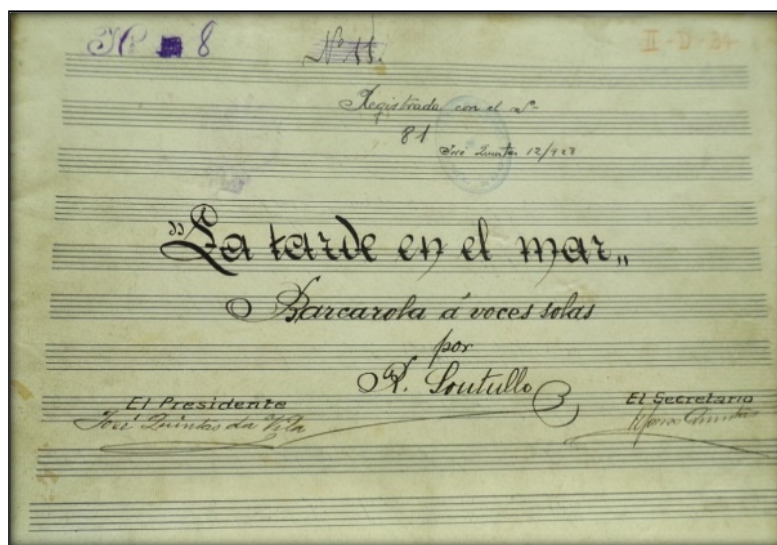 Nº 8
Nº 11.
II-D-34
Registrada con el nº
81
José Quintas 12/927
"La tarde en el mar"
Barcarola á voces solas
por
R. Soutullo
El Presidente
José Quintas da Vila
El Secretario